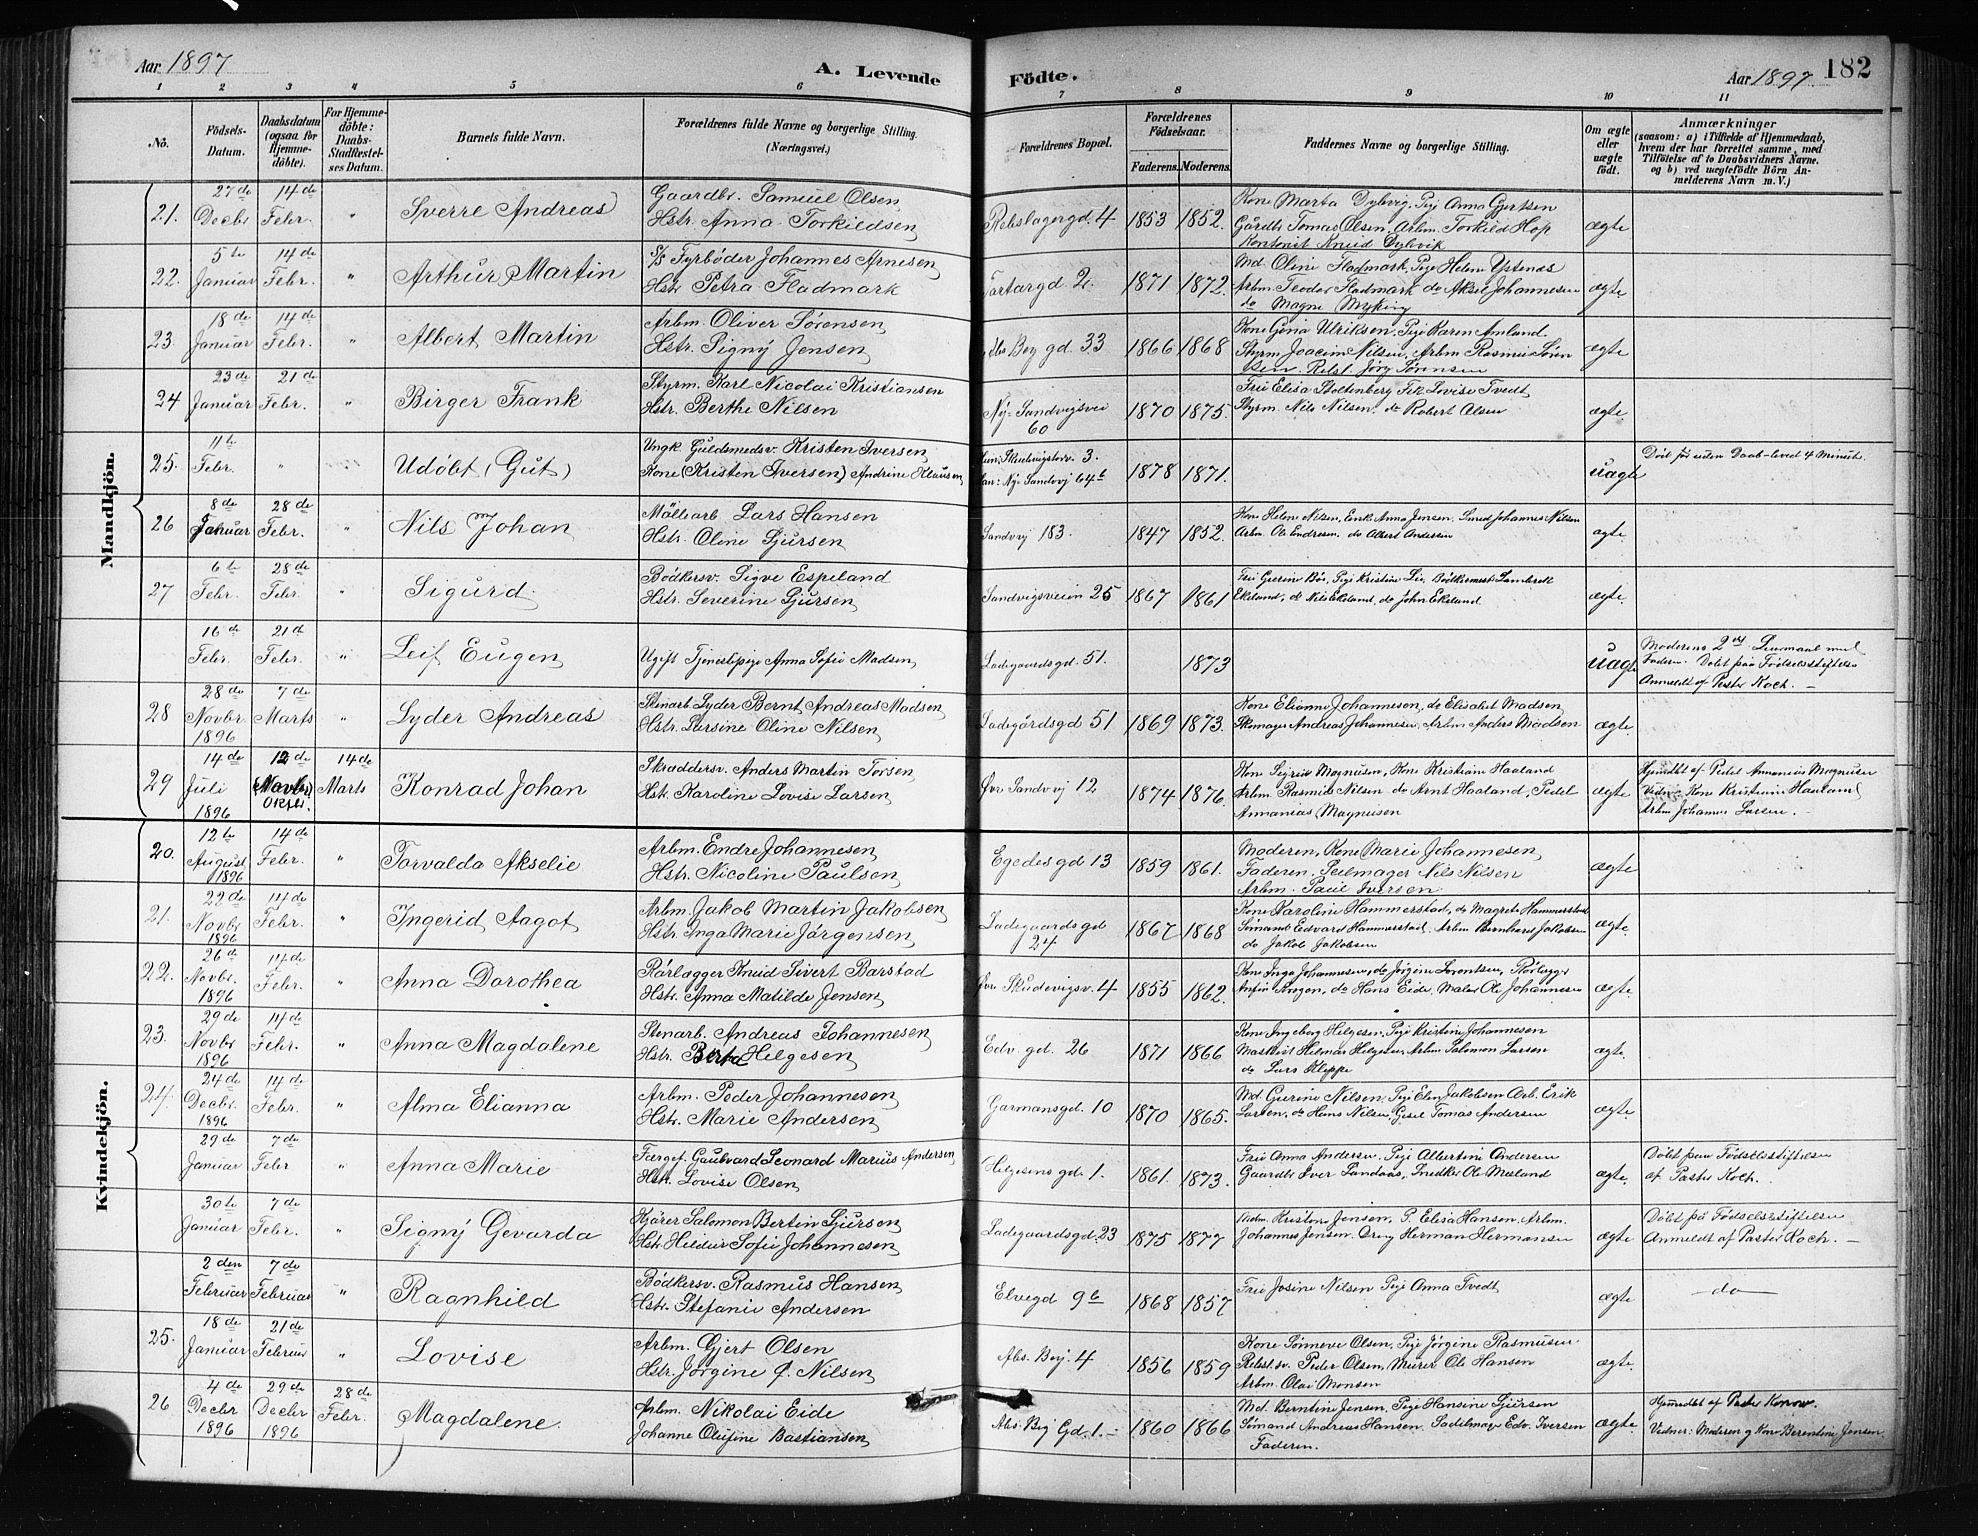 Aar 1897 A. Levende Födte. Aar 1897. 182
1 2 3 4 5 6 7 8 9 10 11
No. Födsels-Datum. Daabsdatum (ogsaa for Hjemmedöbte). For Hjemmedöbte: Daabs-Stadfæstelses Datum. Barnets fulde Navn. Forældrenes fulde Navne og borgerlige Stilling. (Næringsvei.) Forældrenes Bopæl. Forældrenes Födselsaar. Faderens. Moderens. Faddernes Navne og borgerlige Stilling. Om ægte eller uægte födt. Anmærkninger (saasom: a) i Tilfælde af Hjemmedaab, hvem der har forrettet samme, med Tilföielse af to Daabsvidners Navne. og b) ved uægtefödte Börn Anmelderens Navn m. V.)
Mandkjön.
21. 27de Decbr 14de Febr. " Sverre Andreas Gaardbr. Samuel Olsen Hstr. Anna Torkildsen Rebslagergd. 4 1853 1852. Kone Marta Dybvig, Pige Anna Gjertsen
Gårdb Tomas Olsen, Arbm. Torkild Hop
Kontorist Knud Dybvik ægte
22. 5te Januar 14de Febr. " Arthur Martin S/S Fyrbøder Johannes Arnesen Hstr Petra Fladmark Tartargd 2. 1871 1872. Md. Oline Fladmark, Pige Helene Ystenæs
Arbm. Teodor Fladmark do Aksel Johannesen
do Magne Myking ægte
23 18de Januar 14de Febr. " Albert Martin Arbm. Oliver Sörensen Hstr. Signy Jensen Abs Bey gd. 33 1866 1868 Kone Gina Ulriksen, Pige Karen Amland
Styrm. Joacim Nilsen, Arbm Rasmus Sören
sen. Rebsl. Jörg Sörensen ægte
24 23de Januar 21de Febr. " Birger Frank Styrm. Karl Nicolai Kristiansen Hstr. Berthe Nilsen Ny-Sandvigsvei 60 1870 1875. Fru Elisa Stoltenberg Frk Lovise Tvedt
Styrm. Nils Nilsen. do Robert Olsen ægte.
25. 11te Febr. " Udöbt (Gut) Ungk. Guldsmedsv. Kristen Iversen Kone (Kristen Iversen) Andrine Klausen Skudevigsv. 3.
Ny. Sandvj 64b 1878 1871. uægte Död før uden Daab-leved 4 Minuter
26 8de Januar 28de Febr. " Nils Johan Möllearb Lars Hansen Hstr. Oline Sjursen Sandvj 183. 1847 1852. Kone Helene Nilsen, Enk Anna Jensen. Smed Johannes Nilsen
Arbm. Ole Endresen. do Albert Andersen ægte.
27 6te Febr. 28de Febr. " Sigurd. Bödkersv. Sigve Espeland Hstr. Severine Sjursen Sandvigsveien 25 1867 1861 Fru Gurine Bör, Pige Kristine Lie, Bödkermest. Lambrek
Ekeland, do Nils Ekeland, do John Ekeland ægte.
16de Febr. 21de Febr. " Leif Eugen Ugift Tjenestepige Anna Sofie Madsen Ladegaardsgd 51. 1873 uægte Moderens 2det Leiermaal med
Faderen. Döbt paa Födselsstiftelse
Anmeldt af Pastor Koch. —
28 28de Novbr 1896 7de Marts " Lyder Andreas Stenarb Lyder Bernt Andreas Madsen Hstr. Lersine Oline Nilsen Ladegårdsgd 51 1869 1873. Kone Elianne Johannesen, do Elisabet Madsen
Skomager Andreas Johannesen, Arbm Anders Madsen ægte.
29 14de Juli 1896 12de 14de Marts Konrad Johan Skræddersv. Anders Martin Torsen Hstr. Karoline Lovise Larsen Övr Sandvj 12 1874 1876. Kone Sigrid Magnusen, Kone Kristiane Haaland
Arbm Rasmus Nilsen do Arnt Haaland, Pedel
Annanias Magnusen ægte Hjemdbt af Pedel Annanias Magnusen
Vidner Kone Kristiane Haaland
Arbm Johannes Larsen. —
Kvindekjön.
20. 12te August 1896 14de Febr. " Torvalda Akselie Arbm. Endre Johannesen Hstr. Nicoline Paulsen Egedesgd 13 1859 1861. Moderen, Kone Marie Johannesen,
Faderen. Seilmager Nils Nilsen
Arbm. Paul Iversen ægte
21. 22de Novbr 1896 14de Febr. " Ingerid Aagot Arbm. Jakob Martin Jakobsen Hstr. Inga Marie Jörgensen Ladegaardsgd 24 1867 1868 Kone Karoline Hammerstad, do Magrete Hammerstad
Sömand Edvard Hammerstad. Arbm Bernhard Jakobsen
do Jakob Jakobsen ægte.
22. 26de Novbr. 1896 14de Febr. " Anna Dorothea Rörlægger Knud Sivert Barstad Hstr. Anna Matilde Jensen Övr Skudevigsv. 4 1855 1862. Kone Inga Johannesen, do Jörgine Lorentsen, Rörlægger
do Hans Eide. Maler Ole Johannesen ægte.
23. 29de Novbr 1896 14de Febr. " Anna Magdalene Stenarb. Andreas Johannesen Hstr. Berta Helgesen Edv. gd. 26 1871 1866 Kone Ingeborg Helgesen, Pige Kristine Johannesen
Maskist Hilmar Helgesen, Arbm Salomon Larsen
do Lars Kleppe ægte.
24. 24de Decbr. 1896 14de Febr. " Alma Elianna Arbm. Peder Johannesen Hstr. Marie Andersen Garmansgd. 10 1870 1865. Md. Gurine Nilsen, Pige Elen Jakobsen Arb. Erik
Larsen, do Hans Nilsen, Gesel Tomas Andersen ægte.
29de Januar 7de Febr " Anna Marie Færgef. Gaubvard Leonard Marius Andersen Hstr. Lovise Olsen Helgesens gd. 1. 1861. 1873. Fru Anna Andersen. Pige Albertine Andersen
Gaardb Iver Landaas, Snedker Ole Mæland ægte. Döbt paa Födselsstiftelsen
af Pastor Koch.
30te Januar 7de Febr. " Signy Gevarda Kjörer Salomon Bertin Sjursen Hstr. Hildur Sofie Johannesen Ladegaardsgd. 23 1875 1877 Mdm. Kristine Jensen, P. Elisa Hansen. Arbm.
Johannes Jensen. Dreng Herman Hermansen ægte Döbt på Födselsstiftelsen
Anmeldt af Pastor Koch. —
2den Februar 7de Februar " Ragnhild Bödkersv. Rasmus Hansen Hstr. Stefanie Andersen Elvegd 9b 1868 1857 Fru Josine Nilsen Pige Anna Tvedt ægte — do —
25. 18de Januar 21de Februar " Lovise Arbm. Gjert Olsen Hstr. Jörgine O. Nilsen Abs. Beyj 4 1856 1859 Kone Sönneve Olsen, Pige Jörgine Rasmusen
Rebsl.sv. Peder Olsen, Murer Ole Hansen
Arbm. Olai Monsen ægte.
26 4de Decbr 1896 29de Decbr 1896 28de Febr. Magdalene. Arbm. Nikolai Eide Johanne Olufine Bastiansen Abs. Bey Gd. 1. — 1860 1866 Md. Berntine Jensen, Pige Hansine Sjursen
Sömand Andreas Hansen. Sadelmager Edv. Iversen
Faderen. ægte. Hjemdbt af Pastor Konow.
Vidner: Moderen og Kone Berentine Jensen